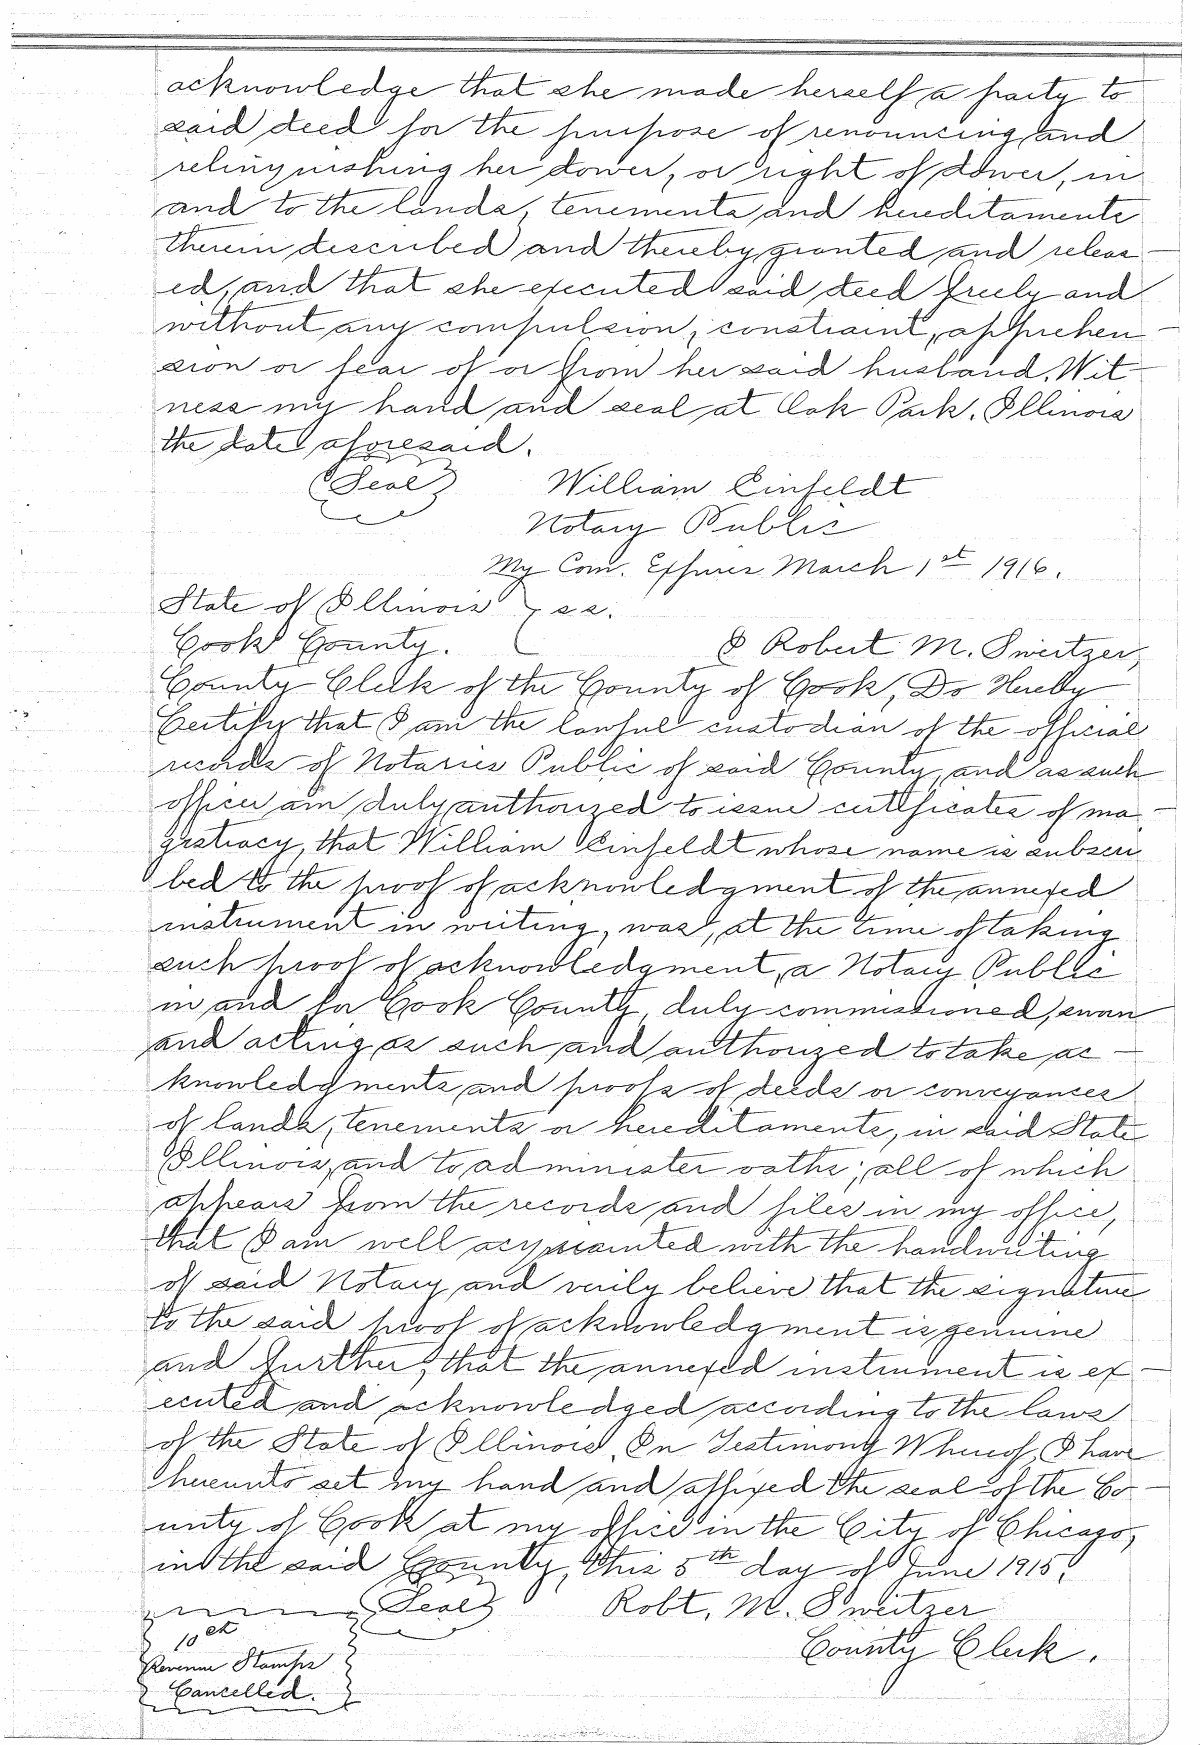 acknowledge that she made herself a party to
said deed for the purpose of renouncing and
relinquishing her dower, or right of dower, in
and to the lands, tenements and hereditaments
therein described and thereby granted and releas-
ed, and that she executed said deed freely and
without any compulsion, constraint, apprehen-
sion or fear of or from her said husband. Wit-
ness my hand and seal at Oak Park, Illinois
the date aforesaid.
(Seal) William Einfeldt
Notary Public
My Com. Expires March 1st 1916.
State of Illinois } s.s.
Cook County. I Robert M. Sweitzer,
County Clerk of the County of Cook, Do Hereby
Certify that I am the lawful custodian of the official
records of Notaries Public of said County, and as such
officer am duly authorized to issue certificates of ma-
gistracy, that William Einfeldt whose name is subscri
bed to the proof of acknowledgment of the annexed
instrument in writing, was, at the time of taking
such proof of acknowledgment, a Notary Public
in and for Cook County, duly commissioned, sworn
and acting as such and authorized to take ac-
knowledgments and proofs of deeds or conveyances
of lands, tenements or hereditaments, in said State
Illinois, and to administer oaths; all of which
appears from the records and files in my office,
that I am well acquainted with the handwriting
of said Notary and verily believe that the signature
to the said proof of acknowledgment is genuine
and further, that the annexed instrument is ex-
ecuted and acknowledged according to the laws
of the State of Illinois. In Testimony Whereof, I have
hereunto set my hand and affixed the seal of the Co-
unty of Cook at my office in the City of Chicago,
in the said County, this 5th day of June 1915.
(Seal) Robt. M. Sweitzer
County Clerk.
10 cts
Revenue Stamps
Cancelled.